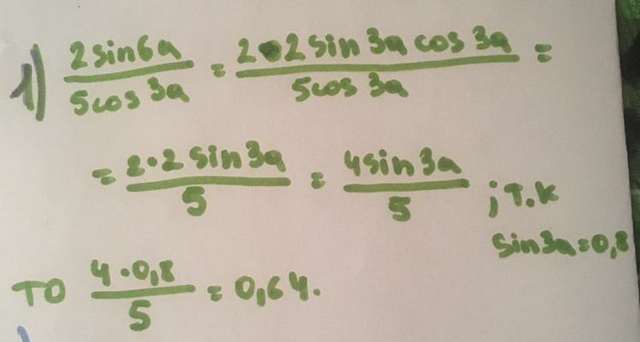 1) 2sin6a/5cos3a = 2•2sin3a cos3a/5cos3a =
= 2•2sin3a/5 = 4sin3a/5 ; т.к
sin3a=0,8
то 4•0,8/5 = 0,64.